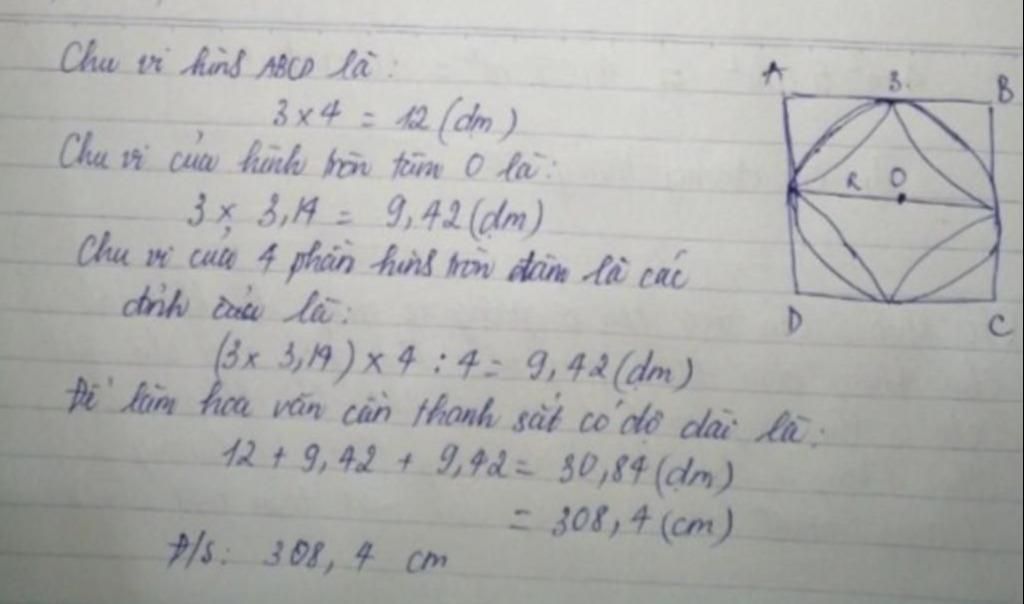 Chu vi hình ABCD là:
3 x 4 = 12 (dm)
Chu vi của hình tròn tâm O là:
3 x 3,14 = 9,42 (dm)
Chu vi của 4 phần hình tròn tâm là các
đỉnh của là:
(3 x 3,14) x 4 : 4 = 9,42 (dm)
Để làm hoa văn cần thanh sắt có độ dài là:
12 + 9,42 + 9,42 = 30,84 (dm)
= 308,4 (cm)
Đ/S: 308,4 cm
A 3 B
R O
D C